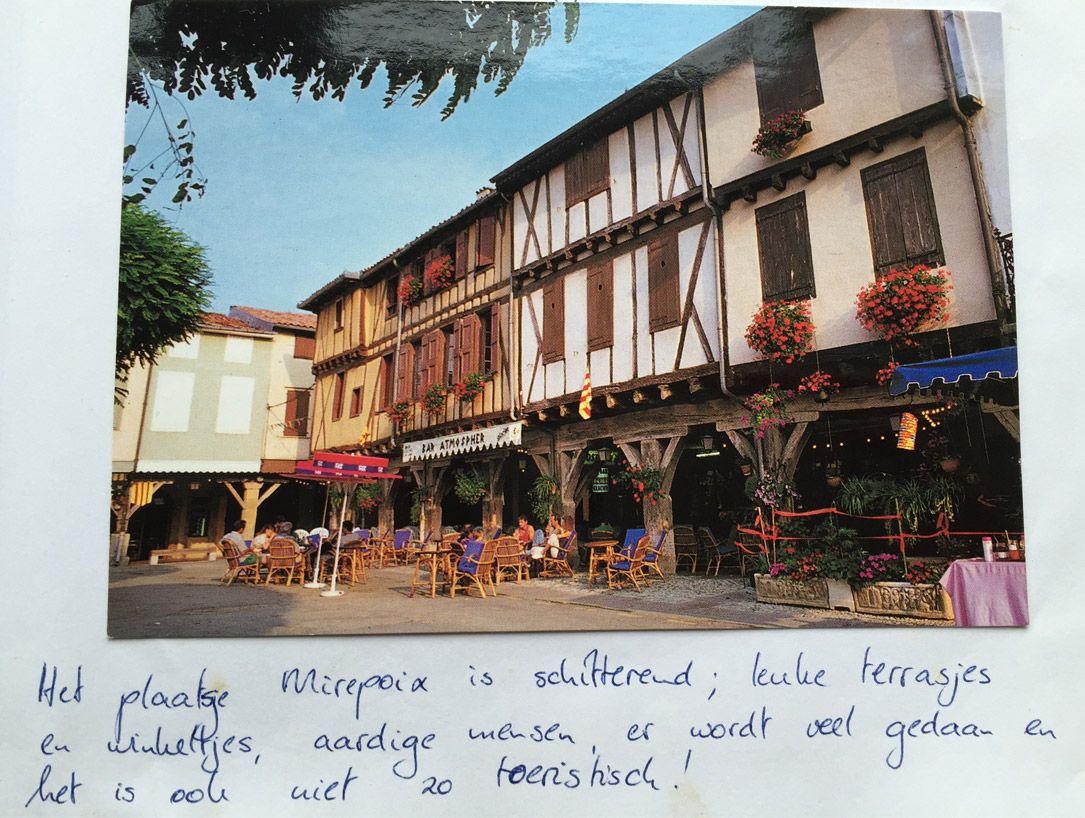 BAR ATMOSPHER
Het plaatsje Mirepoix is schitterend; leuke terrasjes
en winkeltjes, aardige mensen, er wordt veel gedaan en
het is ook niet zo toeristisch!